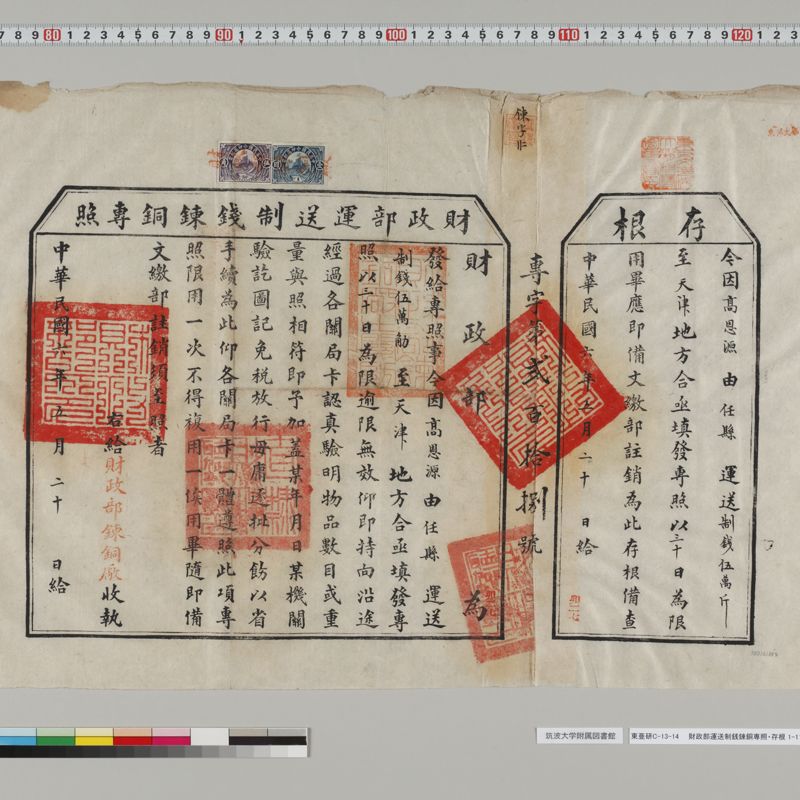 存根
令因高恩源由任縣運送制錢伍萬斤
至天津地方合亟填發專照以三十日為限
用畢應即備文繳部註銷為此存根備查
中華民國六年五月二十日給
專字第貳百拾捌號
財政部運送制錢鍊銅專照
財政部為
發給專照事今因高恩源由任縣運送
制錢伍萬觔至天津地方合亟填發專
照以三十日為限逾限無效仰即持向沿途
經過各關局卡認真驗明物品數目或重
量與照相符即予加蓋某年月日某機關
驗訖圖記免稅放行毋庸逐批分飭以省
手續為此仰各關局卡一體遵照此項專
照限用一次不得複用一俟用畢隨即備
文繳部註銷須至照者
右給財政部鍊銅廠收執
中華民國六年五月二十日給
筑波大学附属図書館
東亜研C-13-14 財政部運送制銭錬銅専照・存根 1-1